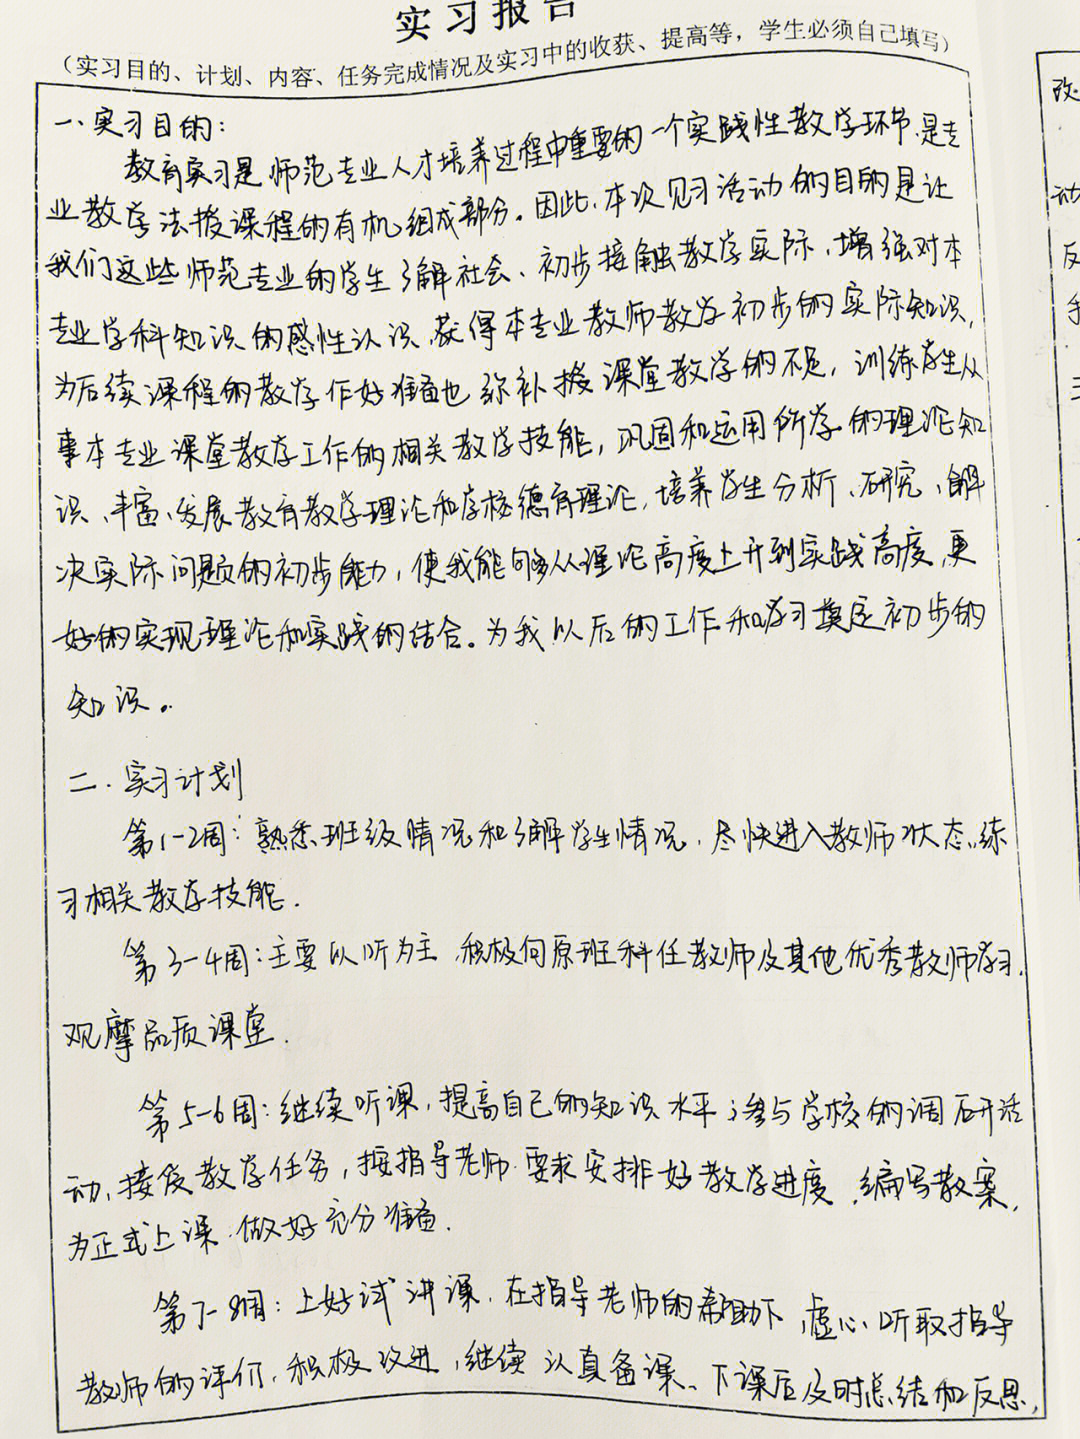 实习报告
（实习目的、计划、内容、任务完成情况及实习中的收获、提高等，学生必须自己填写）
一、实习目的：
教育实习是师范专业人才培养过程中重要的一个实践性教学环节，是专
业教学法授课程的有机组成部分。因此，本次见习活动的目的是让
我们这些师范专业的学生了解社会、初步接触教学实际，增强对本
专业学科知识的感性认识，获得本专业教师教学初步的实际知识，
为后续课程的教学作好准备也 弥补 授课堂教学的不足，训练学生从
事本专业课堂教学工作的相关教学技能，巩固和运用所学的理论知
识、丰富、发展教育教学理论和学校德育理论，培养学生分析、研究、解
决实际问题的初步能力，使我能够从理论高度上升到实践高度，更
好的实现理论和实践的结合。为我以后的工作和学习奠定初步的
知识。
二、实习计划
第1-2周：熟悉班级情况和了解学生情况，尽快进入教师状态，练
习相关教学技能.
第3-4周：主要以听为主，积极向原班科任教师及其他优秀教师学习，
观摩品质课堂.
第5-6周：继续听课，提高自己的知识水平；参与学校的调研活
动，接受教学任务，按指导老师要求安排好教学进度，编写教案，
为正式上课做好充分准备.
第7-8周：上好试讲课，在指导老师的帮助下，虚心听取指导
教师的评价，积极改进，继续认真备课、下课后及时总结和反思，
改
动
反